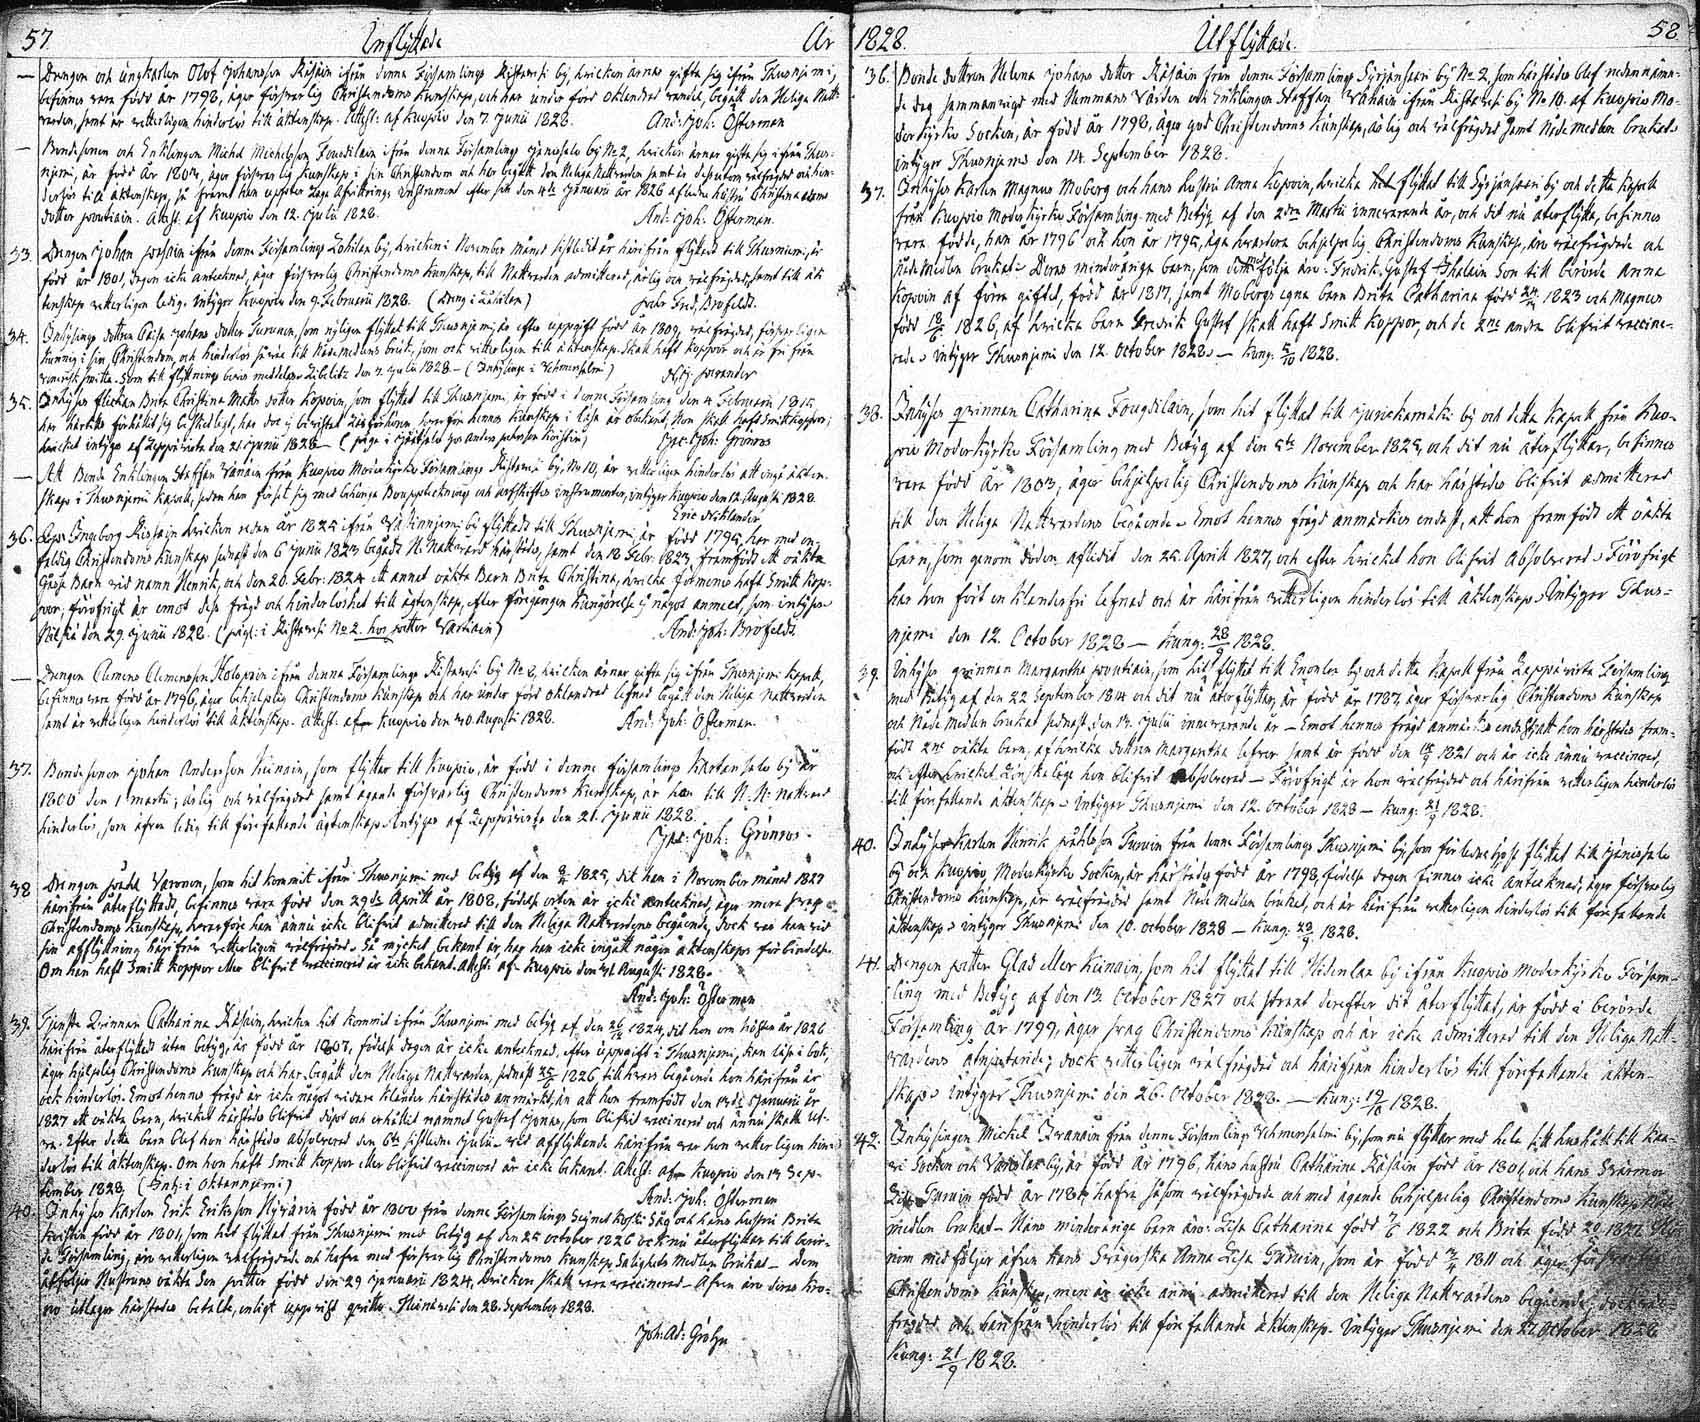 57.
Inflyttade
År
— Drengen och ungkarlen Olof Johansson Räsäin ifrån denna Församlings by, hvilken ärnar gifta sig ifrån Thusnjemi,
befinnes vara född år 1798, äger försvarlig Christendoms Kunskap, och har under förd oklandrad vandel, begått den Heliga Natt-
varden, samt är vetterligen hinderlös till äktenskap. Attest: af Kuopio den 7 Junii 1828.
And: Joh: Österman
— Bondesonen och Enklingen Michel Michelsson Fougdilain ifrån denna Församlings by No 2, hvilken ärnar gifta sig ifrån Thus-
njemi, är född år äger försvarlig Kunskap i sin Christendom och har begått den Heliga Nattvarden samt är dessutom välfrägdad och hin-
derlös till äktenskap, så framt han uppter laga Afvittrings Instrument efter sin den 4de Januarii år 1826 aflidna hustru Christina Adams
dotter Attest: af Kuopio den 12 Julii 1828.
And: Joh: Österman.
33. Drengen Johan ifrån denna Församlings by, hvilken i November månad sistledit år härifrån flyttad till Thusniemi, är
född år 1801, dagen icke antecknad, äger försvarlig Christendoms Kunskap, till Nattvarden admitterad, ärlig och välfrägdad, samt till äk-
tenskap vetterligen ledig. Intygar Kuopio den 9 Februarii 1828. (Dreng i )
Brofeldt.
34. Inhysings dottren Johans dotter Turunen, som nyligen flyttat till Thusnjemi, är efter uppgift född år 1809, välfrägdad, försvarligen
kunnig i sin Christendom, och hinderlös såväl till Nådemedlens bruk, som ock vetterligen till äktenskap. Skall haft koppor och är fri från
venerisk smitta. Som till flyttnings bevis meddelas. Libelitz den Julii 1828 — (Inhysings i Vehmersalmi)

35. Inhyses flickan Brita Christina Matts dotter Kopoin, som flyttat till Thusnjemi, är född i denna Församling den 4 Februarii
har härtills förhållit sig beskedligt, har dock ej bevistat Läsförhören, hvarföre hennes kunskap i läsa är obekant, Hon skall haft Smittkoppor;
hvilket intygas af Leppävirta den 21 Junii 1828 — (
Jac: Joh: Grönroos
— Att Bonde Enklingen Staffan Vänäin från Kuopio Moderkyrko Församlings by, No 10, är vetterligen hinderlös att ingå äkten-
skap i Thusnjemi kapell, sedan han försett sig med behöriga Bouppteckning och arfskiftes instrumenter, intygar Kuopio den 12 Augusti 1828.
Eric Niklander
36. Pigan Ingeborg hvilken redan år 1825 ifrån by flyttade till Thusnjemi, är född 1795, har med en-
faldig Christendoms kunskap sednast den 6 Junii begådt H: Nattvard härstädes, samt den 18 Febr: framfödt ett oäkta
Gosse Barn vid namn Henrik, och den 20 Febr: 1824 ett annat oäkta Barn Brita Christina, hvilka förmenas haft Smitt kop-
por; förövrigt är emot dess frägd och hinderlöshet till ägtenskap, efter föregången Kungörelse ej något anmält, som intygas
Pielsis den 29 Junii 1828. (
And: Joh: Brofeldt
— Drengen Clemens Clemensson Holopain ifrån denna Församlings by No 8, hvilken ärnar gifta sig ifrån Thusnjemi Kapell,
befinnes vara född år 1796, äger behjelplig Christendoms Kunskap och har under förd oklandrad lefnad begått den Heliga Nattvarden
samt är vetterligen hinderlös till äktenskap. Attest: af Kuopio den 20 Augusti 1828.
And: Joh: Österman.
37. Bondesonen Johan Andersson Kiinain, som flyttar till Kuopio, är född i denna Församlings Kartansalo by år
1800 den 1 Martii; ärlig och välfrägdad samt ägande försvarlig Christendoms kunskap, är han till H. H. nattvard
hinderlös, som äfven ledig till förefallande ägtenskap. Intygas af Leppävirta den 21 Junii 1828.
Jac: Joh: Grönroos
38 Drengen Påhl Varonen, som hit kommit ifrån Thusnjemi med betyg af den 1825, dit han i November månad 1827
härifrån återflyttade, befinnes vara född den 29de Aprill år 1808, födelse orten är icke antecknad, äger mera svag
Christendoms kunskap, hvarföre han ännu icke blifvit admitterad till den Heliga Nattvardens begående, dock var han vid
sin afflyttning härifrån vetterligen välfrägdad. Så mycket bekant är, har han icke ingått någon äktenskaps förbindelse.
Om han haft Smitt koppor eller blifvit vaccinerad är icke bekant. Attest: af Kuopio den Augusti 1828.
And: Joh: Österman
39. Tjenste Qvinnan Catharina Räsäin, hvilken hit kommit ifrån Thusnjemi med betyg af den 1824, dit hon om hösten år 1826
härifrån återflyttade utan betyg, är född år 1807, födelse dagen är icke antecknad, efter uppgift i Thusnjemi, kan läsa i bok,
äger hjelplig Christendoms kunskap och har begått den Heliga Nattvarden, sednast 1826, till hvars begående hon härifrån är
ock hinderlös. Emot hennes frägd är icke något vidare klander härstädes anmärkt, än att hon framfödt den Januarii år
1827 ett oäkta barn, hvilket härstädes blifvit döpt och erhållit namnet Gustaf Jonas, som blifvit vaccinerad och ännu skall lef-
va. Efter detta barn blef hon härstädes absolverad den 6te sistledne Julii. Vid afflyttande härifrån var hon vetterligen hin-
derlös till äktenskap. Om hon haft Smitt koppor eller blifvit vaccinerad är icke bekant. Attest: af Kuopio den Sep-
tember 1828. (Inh: i Oktannjemi)
And: Joh: Österman
40. Inhyses Karlen Erik Eriksson född år 1800 från denna Församlings Såg och hans hustru Brita
född år 1801, som hit flyttat från Thusnjemi med betyg af den 25 October 1826 och nu återflyttar till berör-
de Församling, äro vetterligen välfrägdade och hafva med försvarlig Christendoms kunskap Salighets medlen brukat — Dem
åtföljer Hustruns oäkta Son Petter född den 29 Januarii 1824, hvilken skall vara vaccinerad — Äfven äro deras Kro-
no utlagor härstädes betalte, enligt uppvist qvitto. den 28 September 1828.
Joh: Ad: Gröhn
1828.
Utflyttade.
58.
36. Bonde dottren Helena Johans dotter Räsäin från denna Församlings Syvjänsaari by No 2, som härstädes blef nedannäm-
de dag sammanvigd med Hemmans Värden och Enklingen Staffan Vänäin ifrån by No 10. af Kuopio Mo-
derkyrko Socken, är född år 1798, äger god Christendoms kunskap, ärlig och välfrägdad samt Nådemedlen brukat.
intygar Thusnjemi den 14. September 1828.
37. Inhyses Karlen Magnus Moberg och hans hustru Anna Kopoin, hvilka flyttat till Syvjänsaari by och detta Kapell
från Kuopio Moderkyrko Församling med Betyg af den 2dra Martii innevarande år, och dit nu återflytta, befinnes
vara födde, han år 1796 och hon år 1795, äga hvardera behjelpelig Christendoms Kunskap, äro välfrägdade och
Nådemedlen brukat. Deras minderåriga barn, som dem medfölja äro: Fredrik Gustaf Son till berörde Anna
Kopoin af förra giftet, född år 1817, samt Mobergs egna barn Brita Catharina född 1823 och Magnus
född 18/6 1826, af hvilka barn Fredrik Gustaf skall haft Smitt koppor, och de 2ne andra blifvit vaccine-
rade. intygar Thusnjemi den 12. October 1828. — Kung: 5/10 1828.
38. Inhyses qvinnan Catharina Fougdilain, som hit flyttat till Juurickamäki by och detta kapell från Kuo-
pio Moderkyrko Församling med Betyg af den 5te November 1825, och dit nu återflyttar, befinnes
vara född år äger behjelpelig Christendoms Kunskap och har härstädes blifvit admitterad
till den Heliga Nattvardens begående. Emot hennes frägd anmärkes endast, att hon framfödt ett oäkta
barn, som genom döden afledit den 25. Aprill 1827, och efter hvilket hon blifvit absolverad. Förövrigt
har hon fört en klanderfri lefnad och är härifrån vetterligen hinderlös till äktenskap. Intygar Thus-
njemi den 12. October 1828 — Kung: 28/9 1828.
39. Inhyses qvinnan Margaretha som hit flyttat till Enonlax by och detta Kapell från Leppävirta Församling
med Betyg af den 22 September 1814 och dit nu återflyttar, är född år 1787, äger försvarlig Christendoms kunskap
och Nådemedlen brukat sednast den 13. Julii innevarande år — Emot hennes frägd anmärkes endast, att hon härstädes fram-
födt 2ne oäkta barn, af hvilka dottren Margaretha lefver samt är född den 1821 och är icke ännu vaccinerad,
och efter hvilket hon blifvit absolverad — Förövrigt är hon välfrägdad och härifrån vetterligen hinderlös
till förefallande äktenskap. intygar Thusnjemi den 12. October 1828 — Kung: 21/9 1828.
40. Inhyses Karlen Henrik Påhlsson Turuin från denna Församlings Thusnjemi by, som förledne höst flyttat till Jänissalo
by och Kuopio Moderkyrko Socken, är härstädes född år 1798, födelse dagen finnes icke antecknad; äger försvarlig
Christendoms kunskap, är välfrägdad samt Nådemedlen brukat, och är härifrån vetterligen hinderlös till förefallande
äktenskap. intygar Thusnjemi den 10. October 1828 — Kung: 28/9 1828.
41. Drengen Petter Glad eller Kiinain, som hit flyttat till Hidenlax by ifrån Kuopio Moderkyrko Försam-
ling med Betyg af den 13. October 1827 och strax derefter dit återflyttat, är född i berörde
Församling år 1799, äger svag Christendoms kunskap och är icke admitterad till den Heliga Natt-
vardens åtnjutande; dock vetterligen välfrägdad och härifrån hinderlös till förefallande äkten-
skap. intygar Thusnjemi den 26. October 1828. — Kung: 19/10 1828.
42. Inhysingen Michel Ivanain från denna Församlings Vehmersalmi by, som nu flyttar med hela sitt hushåll till Kaa-
vi Socken och by, är född år 1796, hans hustru Catharina Räsäin född år 1801, och hans Svärmor
Turuin född år hafva såsom välfrägdade och med ägande behjelpelig Christendoms kunskap Nåde-
medlen brukat — Hans minderåriga barn äro: Lisa Catharina född 1822 och Brita född 1827.
nom medföljer äfven hans Svägerska Anna Lisa Turuin, som är född 1811 och äger försvarlig
Christendoms kunskap, men är icke ännu admitterad till den Heliga Nattvardens begående; dock väl-
frägdad och härifrån hinderlös till förefallande äktenskap. intygar Thusnjemi den October 1828
Kung: 21/9 1828.